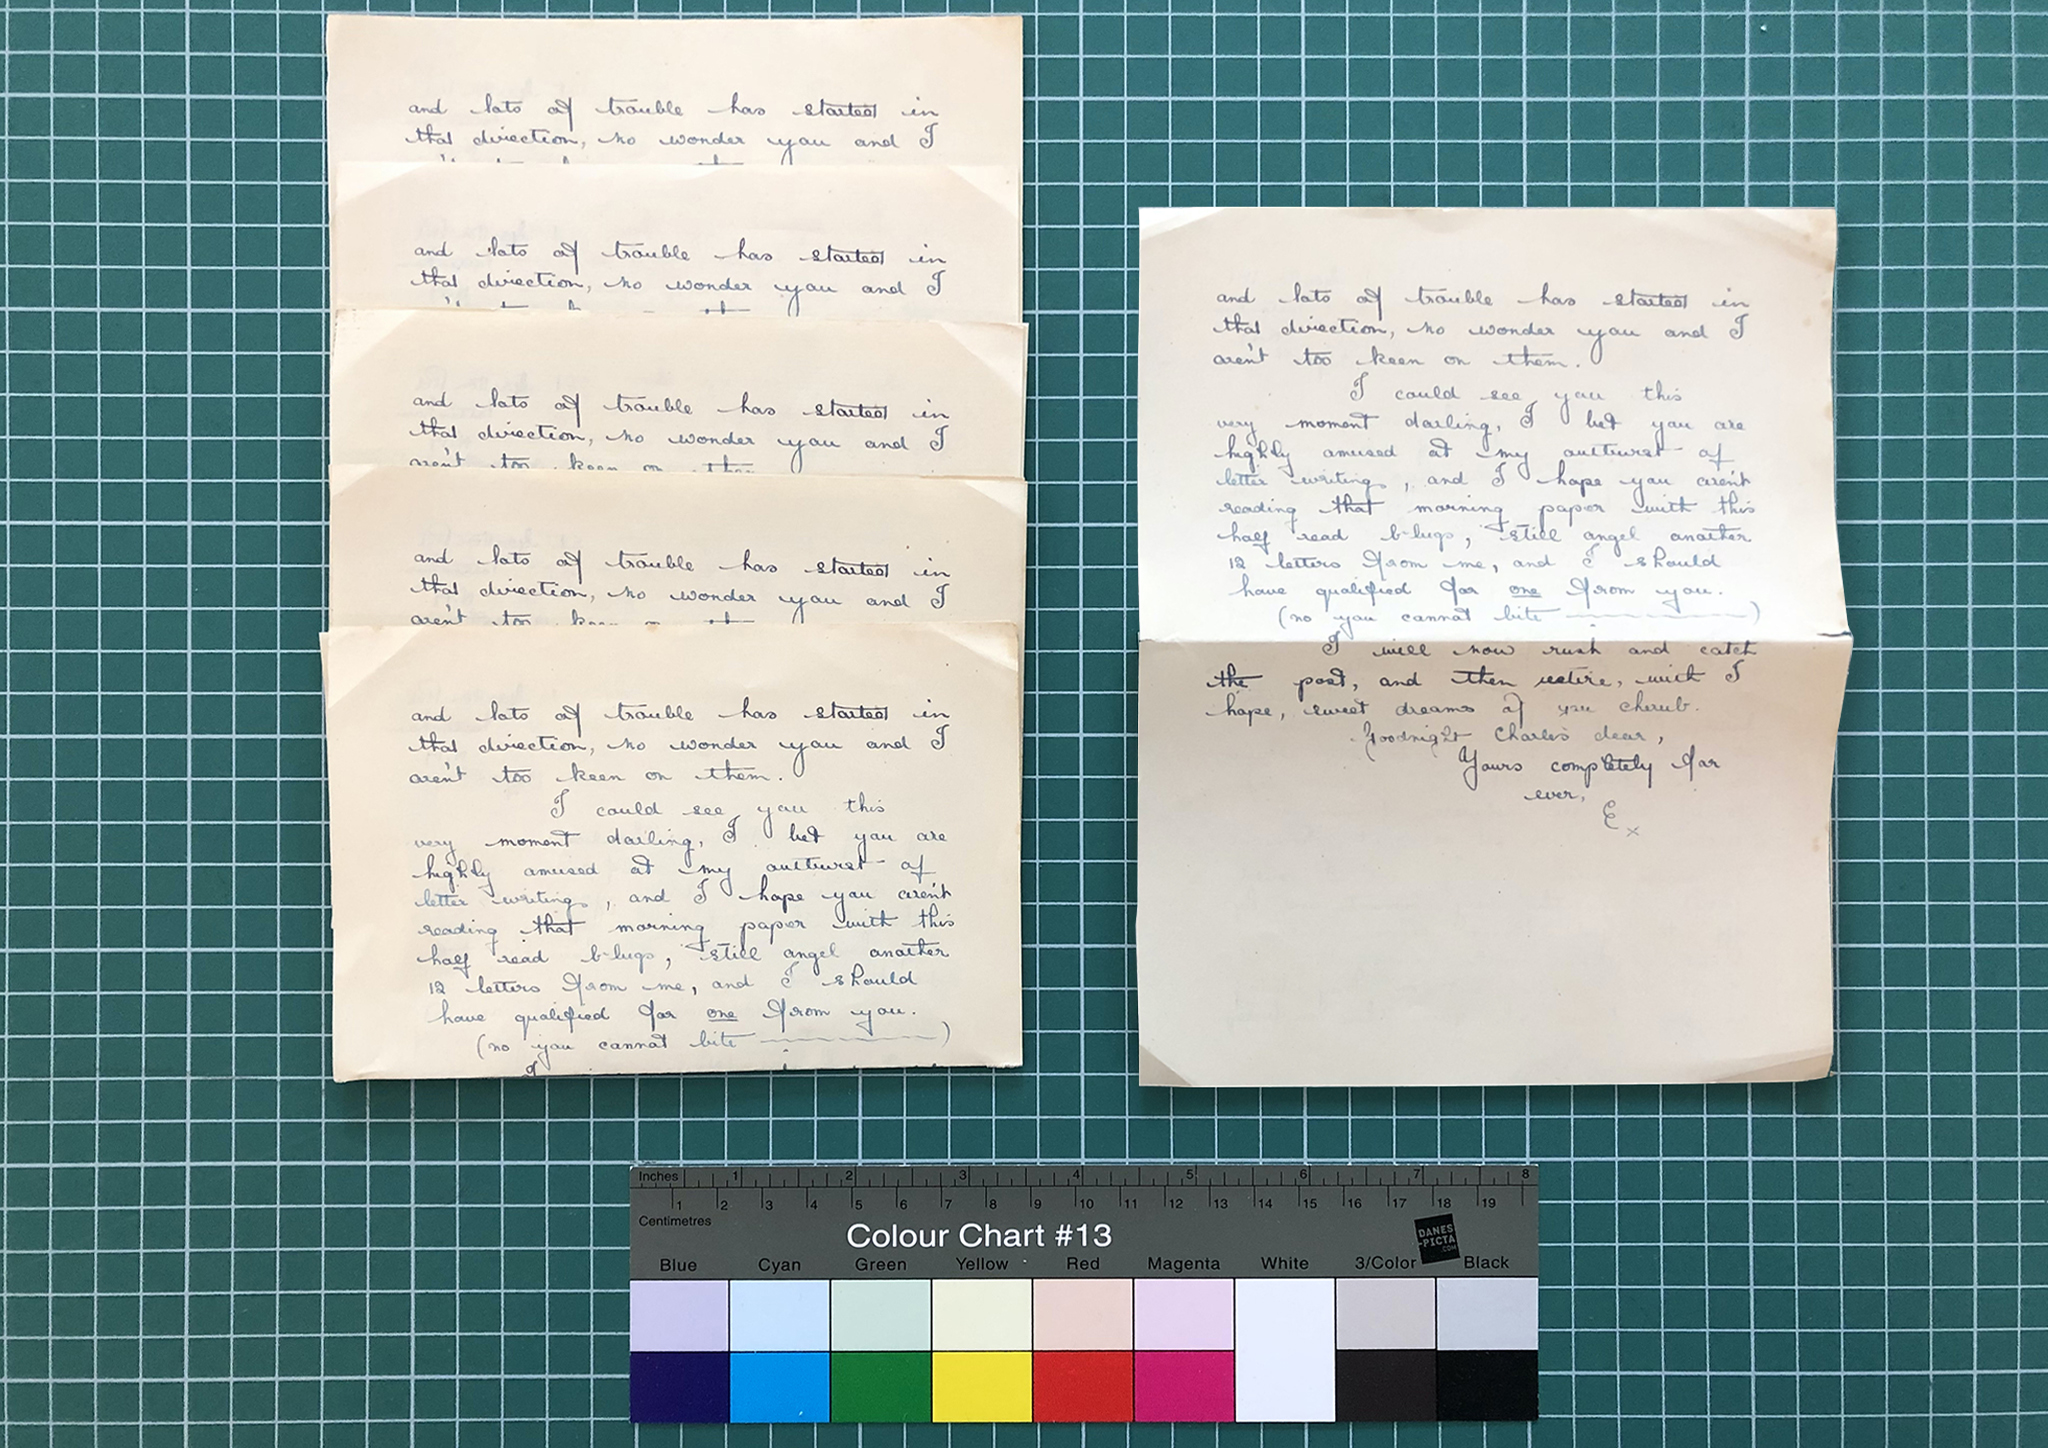 and lots of trouble has started in
that direction, no wonder you and I
and lots of trouble has started in
that direction, no wonder you and I
and lots of trouble has started in
that direction, no wonder you and I
aren't too keen on them
and lots of trouble has started in
that direction, no wonder you and I
aren't too keen on them
and lots of trouble has started in
that direction, no wonder you and I
aren't too keen on them.
I could see you this
very moment darling, I bet you are
highly amused at my outburst of
letter writing, and I hope you aren't
reading that morning paper with this
half read b-lugs, still angel another
12 letters from me, and I should
have qualified for one from you.
(no you cannot bite )
I
and lots of trouble has started in
that direction, no wonder you and I
aren't too keen on them.
I could see you this
very moment darling, I bet you are
highly amused at my outburst of
letter writing, and I hope you aren't
reading that morning paper with this
half read b-lugs, still angel another
12 letters from me, and I should
have qualified for one from you.
(no you cannot bite )
I will now rush and catch
the post, and then retire, with I
hope, sweet dreams of you cherub.
Goodnight Charles dear,
Yours completely for
ever,
E x
Inches 1 2 3 4 5 6 7 8
1 2 3 4 5 6 7 8 9 10 11 12 13 14 15 16 17 18 19
Centimetres
Colour Chart #13
DANES
-PICTA
.COM
Blue Cyan Green Yellow Red Magenta White 3/Color Black